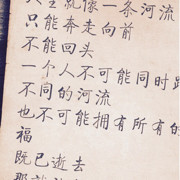 人生就像一条河流
只能奔走向前
不能回头
一个人不可能同时
不同的河流
也不可能拥有所有的
福
既已逝去
那